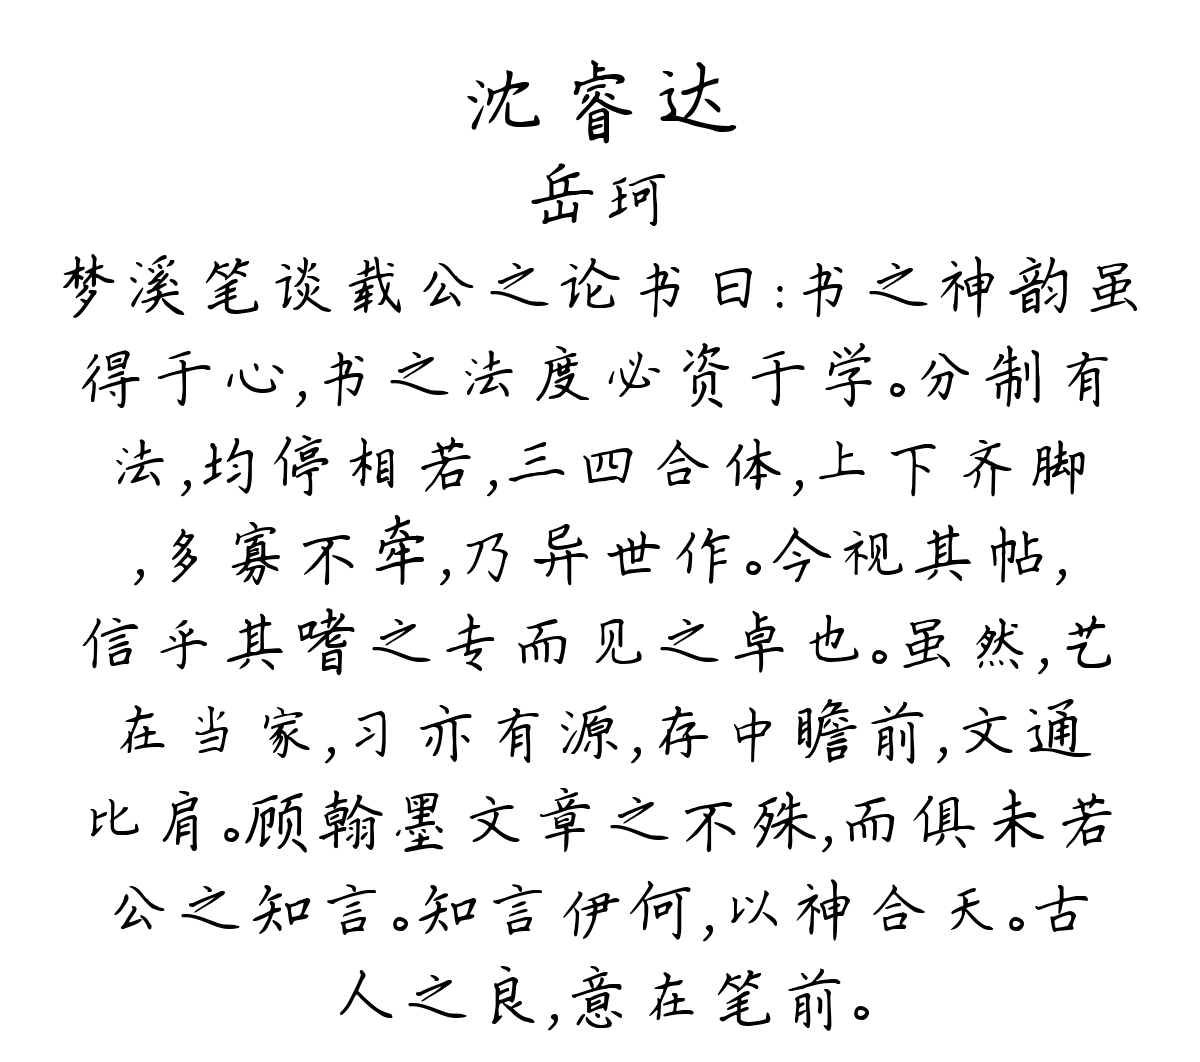 沈睿达
岳珂
梦溪笔谈载公之论书曰:书之神韵虽
得于心,书之法度必资于学。分制有
法,均停相若,三四合体,上下齐脚
,多寡不牵,乃异世作。今视其帖,
信乎其嗜之专而见之卓也。虽然,艺
在当家,习亦有源,存中瞻前,文通
比肩。顾翰墨文章之不殊,而俱未若
公之知言。知言伊何,以神合天。古
人之良,意在笔前。